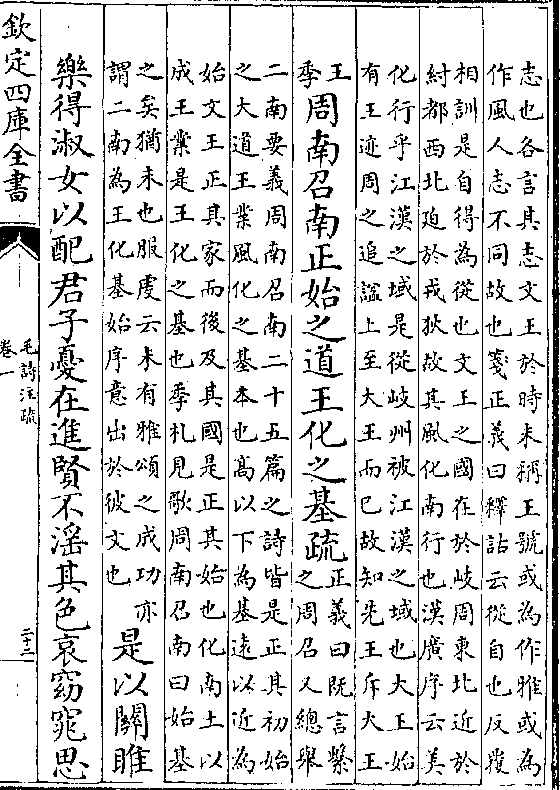 志也各言其志文王於時未稱王號或為作雅或為
作風人志不同故也箋正義曰釋詁云從自也反覆
相訓是自得為從也文王之國在於岐周東北近於
紂都西北迫於戎狄故其風化南行也漢廣序云美
化行乎江漢之域是從岐州被江漢之域也大王始
有王迹周之追諡上至大王而已故知先王斥大王
王
季
周南召南正始之道王化之基疏
正義曰既言繫
之周召又總舉
二南要義周南召南二十五篇之詩皆是正其初始
之大道王業風化之基本也高以下為基遠以近為
始文王正其家而後及其國是正其始也化南土以
成王業是王化之基也季札見歌周南召南曰始基
之矣猶未也服虔云未有雅頌之成功亦
謂二南為王化基始序意出於彼文也
是以關雎
樂得淑女以配君子憂在進賢不淫其色哀窈窕思
欽定四庫全書
毛詩注疏
卷一
二十三